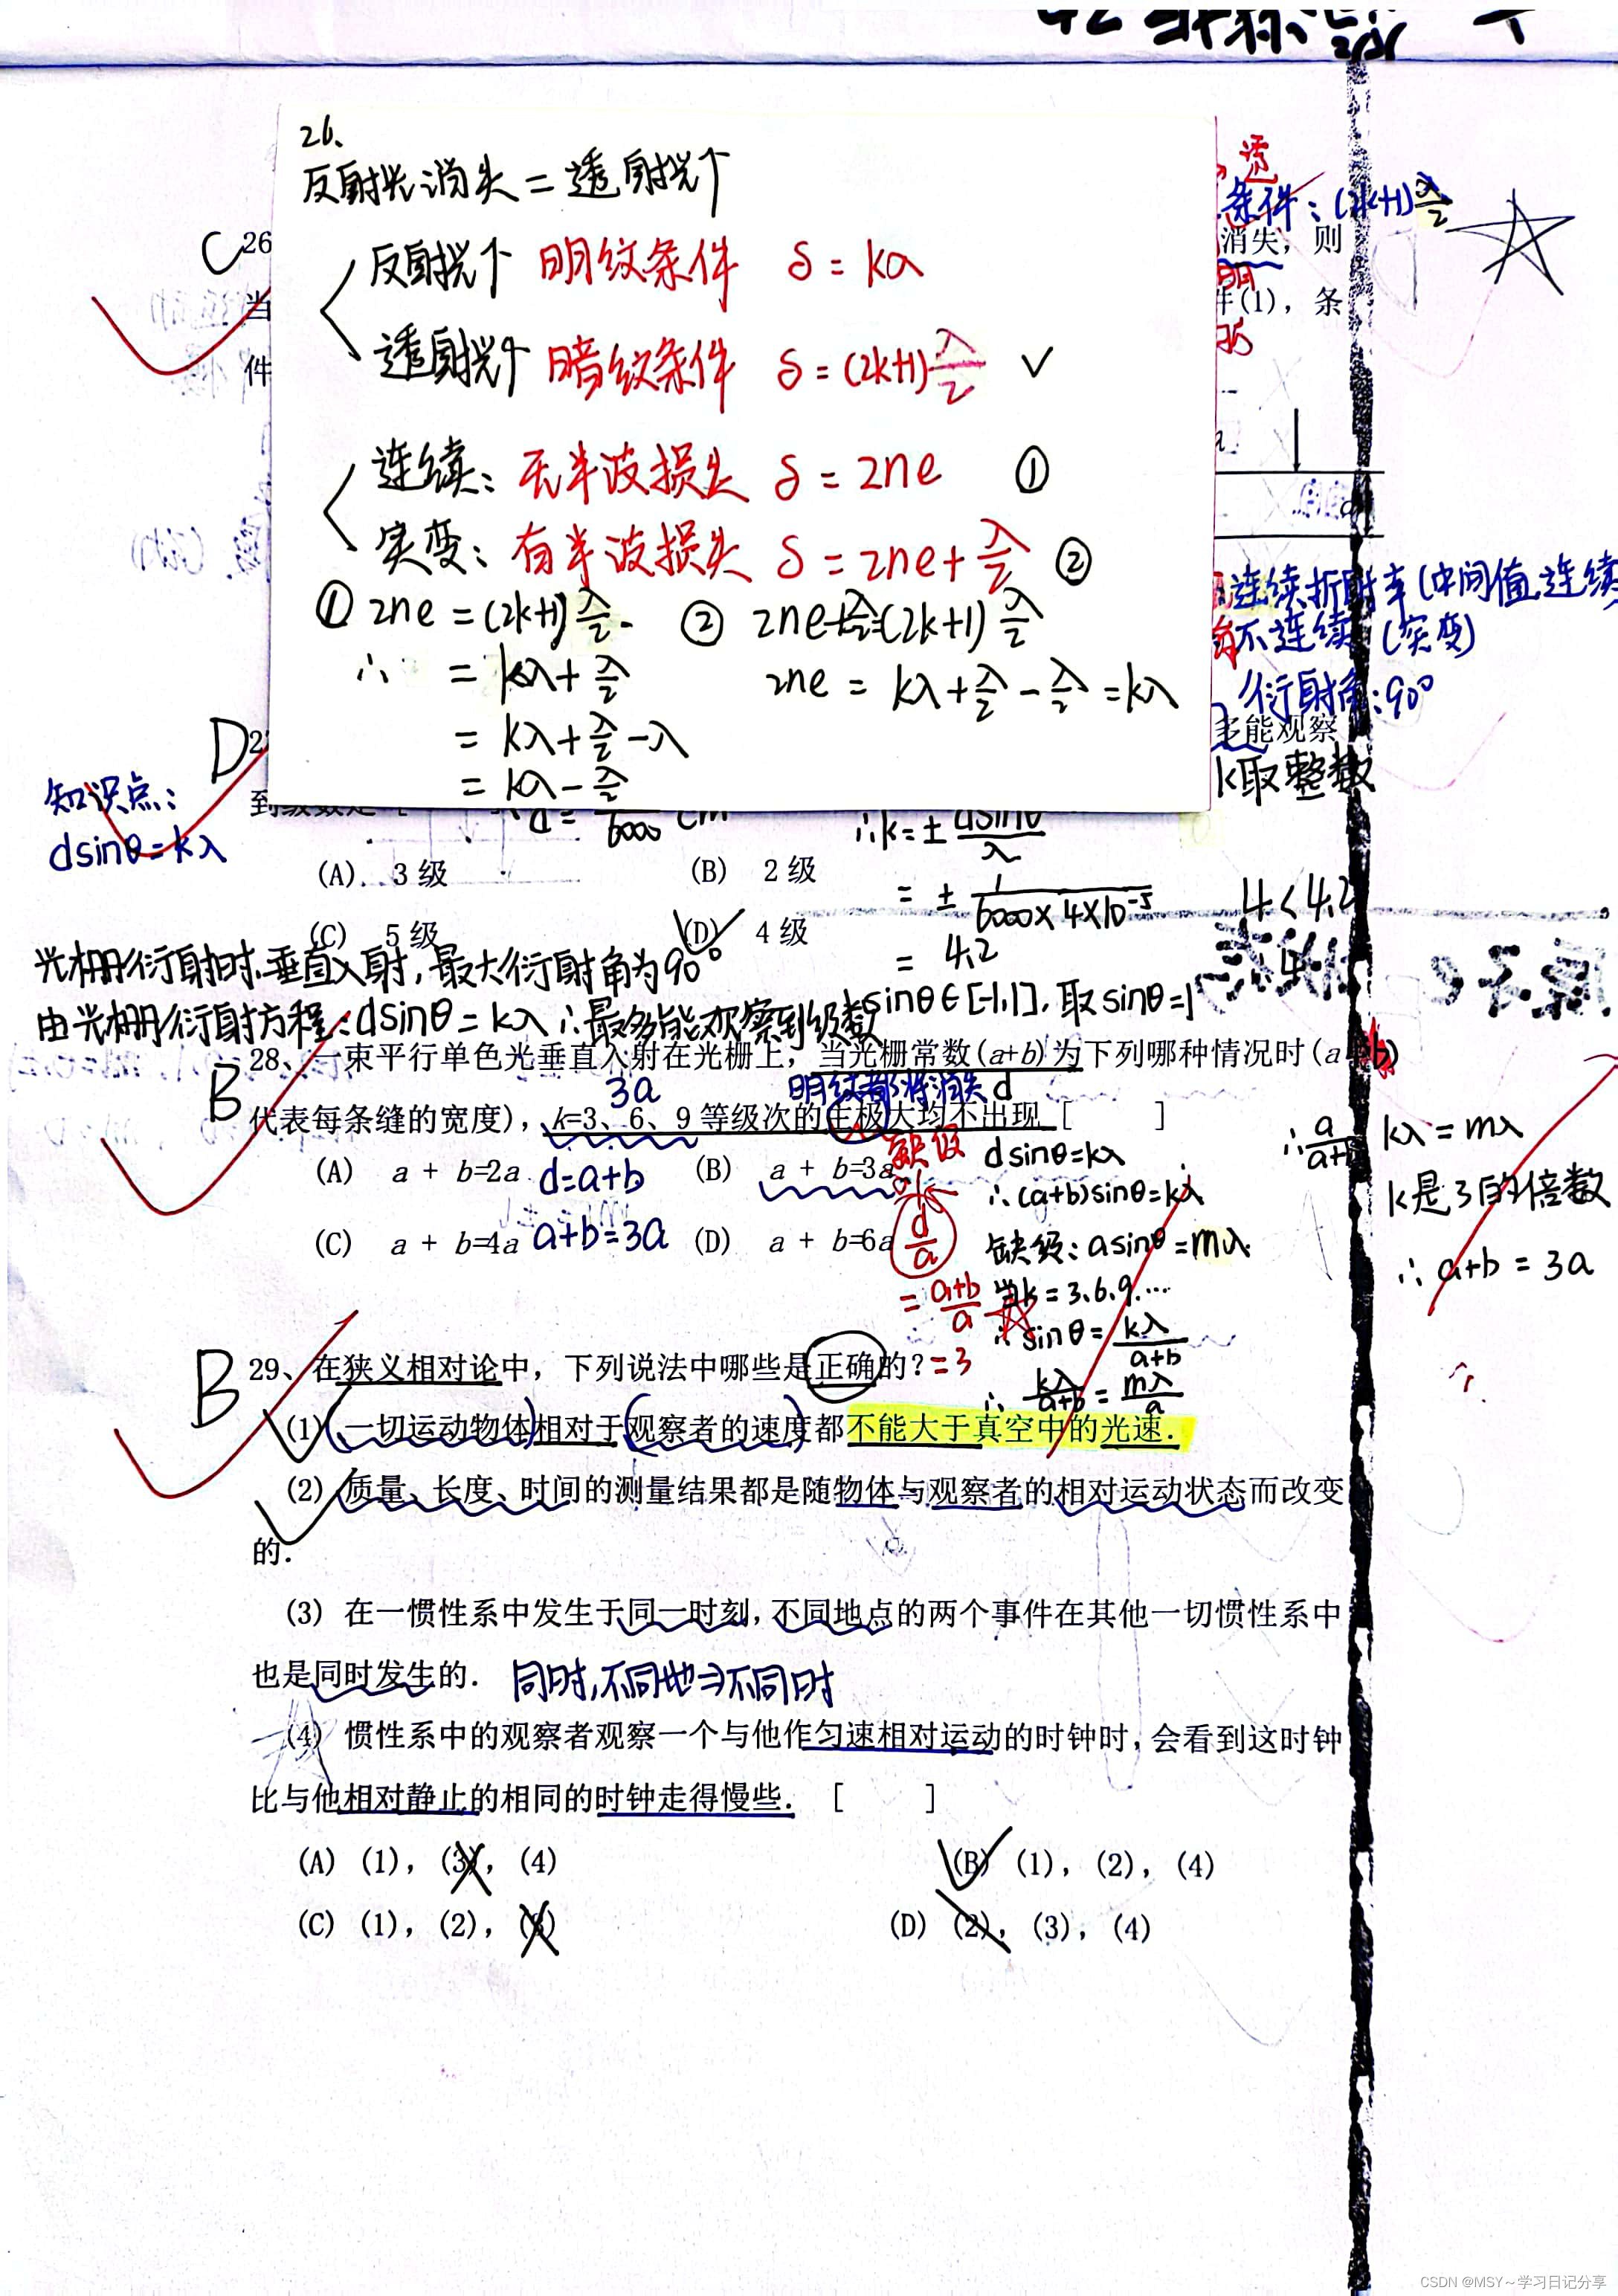 26、
反射光消失=透射光↑
反射光↑ 明纹条件 δ=kλ
透射光↑ 暗纹条件 δ=(2k+1)λ/2 ✓
连续：无半波损失 δ=2ne ①
突变：有半波损失 δ=2ne+λ/2 ②
① 2ne=(2k+1)λ/2
∴ =kλ+λ/2
=kλ+λ/2-λ
=kλ-λ/2
② 2ne+λ/2=(2k+1)λ/2
2ne=kλ+λ/2-λ/2=kλ
透
条件：(2k+1)λ/2
C 26
消失，则
明
当
件(1)，条
件
连续折射率(中间值,连续)
不连续(突变)
衍射角:90°
D 2
多能观察
k取整数
知识点：
dsinθ=kλ
6000 cm
∴k=± dsinθ/λ
(A) 3级 (B) 2级
=± 1/(6000×4×10⁻⁵)
4<4.2
(C) 5级 (D) 4级
=4.2
4
光栅衍射时,垂直入射,最大衍射角为90°
sinθ∈[-1,1],取sinθ=1
由光栅衍射方程:dsinθ=kλ ∴最多能观察到级数
B 28、一束平行单色光垂直入射在光栅上，当光栅常数(a+b)为下列哪种情况时(a
3a 明纹都将消失 d
代表每条缝的宽度)，k=3、6、9等级次的主极大均不出现 [ ]
缺级
(A) a + b=2a d=a+b (B) a + b=3a
(C) a + b=4a a+b=3a (D) a + b=6a
d/a
=(a+b)/a
=3
dsinθ=kλ
∴(a+b)sinθ=kλ
缺级：asinθ=mλ
当k=3.6.9.…
∴sinθ=kλ/(a+b)
∴ kλ/(a+b)=mλ/a
kλ=mλ
k是3的倍数
∴a+b=3a
B 29、在狭义相对论中，下列说法中哪些是正确的？
(1) 一切运动物体相对于观察者的速度都不能大于真空中的光速．
(2) 质量、长度、时间的测量结果都是随物体与观察者的相对运动状态而改变
的．
(3) 在一惯性系中发生于同一时刻，不同地点的两个事件在其他一切惯性系中
也是同时发生的． 同时,不同地⇒不同时
(4) 惯性系中的观察者观察一个与他作匀速相对运动的时钟时，会看到这时钟
比与他相对静止的相同的时钟走得慢些． [ ]
(A) (1)，(3)，(4) (B) (1)，(2)，(4)
(C) (1)，(2)，(3) (D) (2)，(3)，(4)
CSDN @MSY~学习日记分享